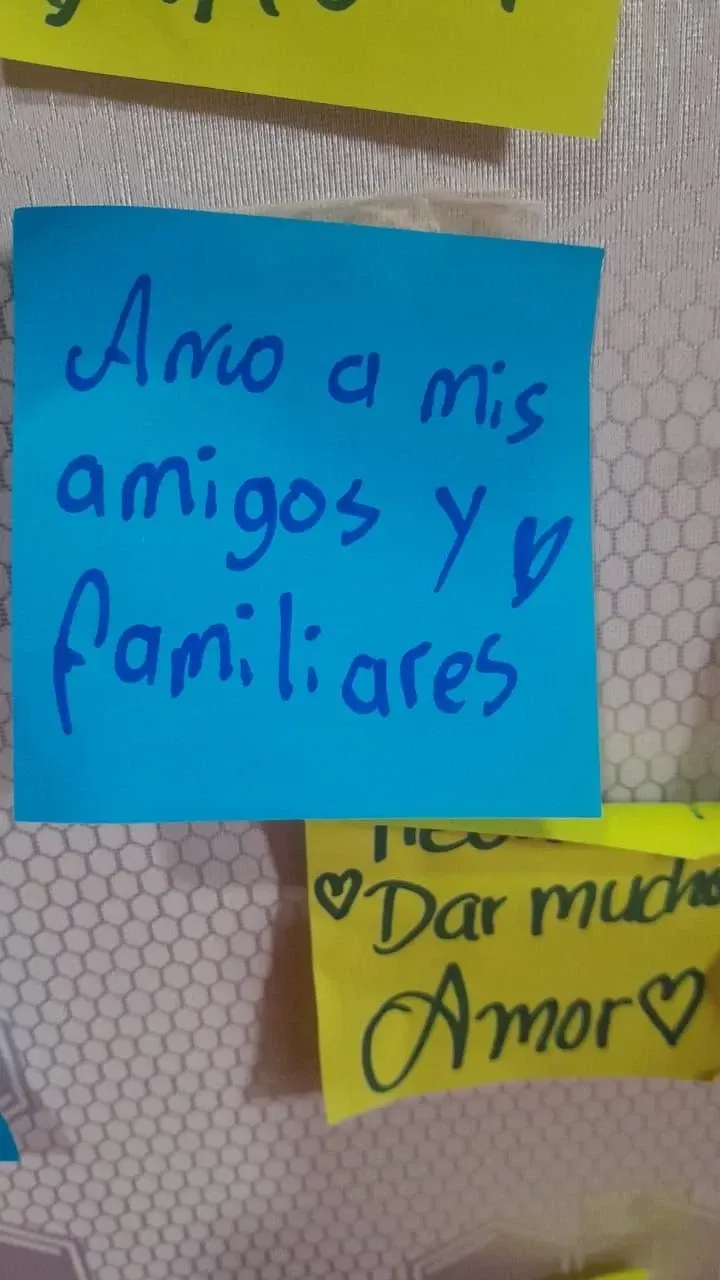 Amo a mis
amigos y
familiares
Dar mucho
Amor